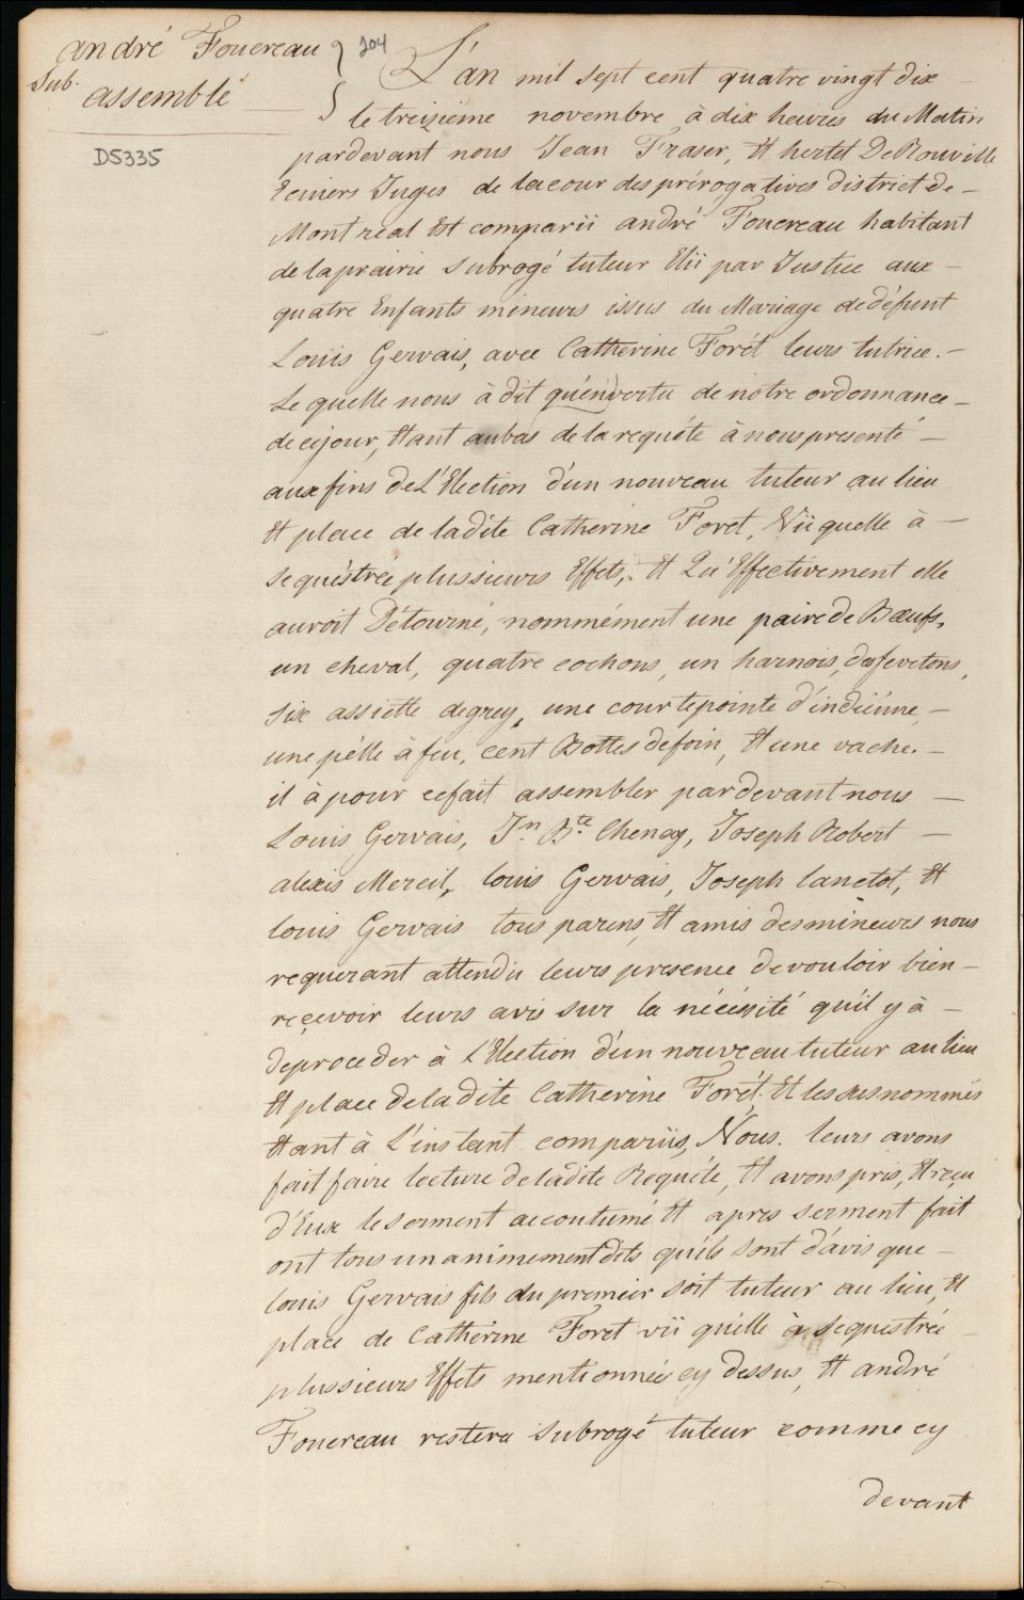 andré Fouereau
Sub.
assemblé
DS335
204
L'an mil sept cent quatre vingt dix
le treizieme novembre à dix heures du Matin
pardevant nous Jean Fraser, Et hertel De Rouville
Ecuiers Juges de lacour des prérogatives district de
Montreal Est comparü andré Fouereau habitant
de laprairie Subrogé tuteur Elü par Justice aux
quatre Enfants mineurs issus du Mariage de défunt
Louis Gervais, avec Catherine Forét leurs tutrice.
Le quelle nous à dit qu'en vertu de notre ordonnance
de cejour, Etant aubas de la requéte à nous presenté
aux fins de L'Election d'un nouveau tuteur au lieu
Et place de ladite Catherine Foret, Vü quelle à
Sequéstrée plussieurs Effets, Et Qu'Effectivement elle
auroit Détourné, nommément une paire de Bœufs,
un cheval, quatre cochons, un harnois,
Six assiette degrey, une courtepointe d'indiénne
une pélle à feu, cent Bottes defoin, Et une vache.
il à pour cefait assembler pardevant nous
Louis Gervais, Jn. Bte. Chenay, Joseph Robert
alexis Merceil, louis Gervais, Joseph lanctot, Et
louis Gervais tous parens, Et amis desmineurs nous
requerant attendü leurs presence devouloir bien
reçevoir leurs avis sur la nécéssité qu'il y à
deproceder à L'Election d'un nouveau tuteur au lieu
Et place deladite Catherine Forét. Et les susnommés
Etant à L'instant comparüs, Nous. leurs avons
fait faire lecture de ladite Requéte, Et avons pris, Et reçu
d'Eux le serment accoutumé Et apres serment fait
ont tous unanimement dits qu'ils sont d'avis que
louis Gervais fils du premier soit tuteur au lieu, Et
place de Catherine Foret vü qu'elle à Sequestrée
plussieurs Effets mentionnées cy dessus, Et andré
Fouereau restera Subrogé tuteur comme cy
devant